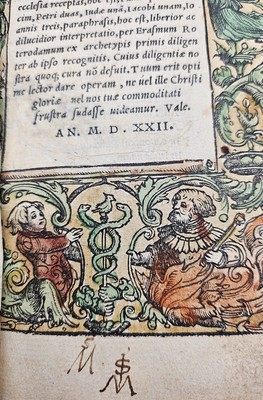 ecclesia receptas, hoc est,
cim, Petri duas, Iudæ unā, Iacobi unam, Io
annis treis, paraphrasis, hoc est, liberior ac
dilucidior interpretatio, per Erasmum Ro
terodamum ex archetypis primis diligen
ter ab ipso recognitis. Cuius diligentiæ no
stra quoq; cura nō defuit. Tuum erit opti
me lector dare operam, ne uel ille Christi
gloriæ nel nos tuæ commoditati
frustra sudasse uideamur. Vale.
AN. M. D. XXII.